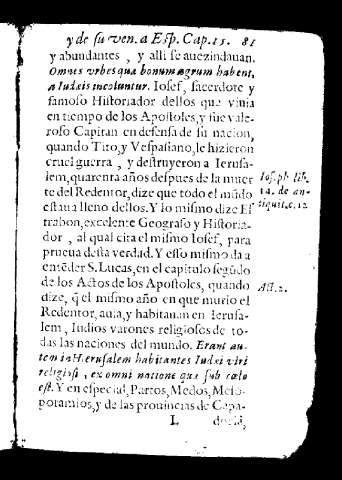 y de su ven. a Esp. Cap. 15. 81
y abundantes, y alli se auezindauan.
Omnes vrbes quæ bonum agrum habent,
a Iudæis incoluntur. Iosef, sacerdote y
famoso Historiador dellos que viuia
en tiempo de los Apostoles, y fue vale-
roso Capitan en defensa de su nacion,
quando Tito, y Vespasiano, le hizieron
cruel guerra, y destruyeron a Ierusa-
lem, quarenta años despues de la muer
te del Redentor, dize que todo el mũdo
estaua lleno dellos. Y lo mismo dize Es
trabon, excelente Geografo y Historia-
dor, al qual cita el mismo Iosef, para
prueua desta verdad. Y esto mismo da a
entẽder S. Lucas, en el capitulo segũdo
de los Actos de los Apostoles, quando
dize, q̃ el mismo año en que murio el
Redentor, auia, y habitauan en Ierusa-
lem, Iudios varones religiosos de to-
das las naciones del mundo. Erant au-
tem in Hierusalem habitantes Iudæi viri
religiosi, ex omni natione quæ sub cœlo
est. Y en especial, Partos, Medos, Meso-
potamios, y de las prouincias de Capa-
L docia,
Ios. ph. lib.
14. de an-
tiquit. c. 12
Act. 2.